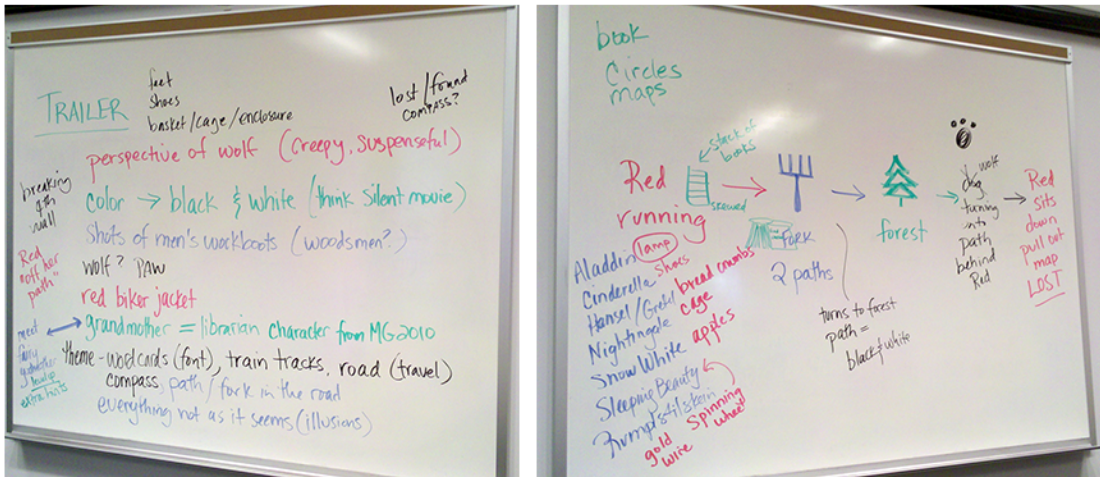 TRAILER
feet
shoes
basket/cage/enclosure
lost/found
compass?
perspective of wolf (creepy, suspenseful)
breaking
4th
wall
color → black & white (think silent movie)
shots of men's workboots (woodsmen?)
Red
"off her
path"
wolf? PAW
red biker jacket
meet
fairy
godmother
extra hints
grandmother = librarian character from MG2010
theme - wordcards (font), train tracks, road (travel)
compass, path / fork in the road
everything not as it seems (illusions)
book
circles
maps
stack of
books
Red
running
skewed
fork
2 paths
forest
dog
wolf
turning
into
path
behind
Red
Red
sits
down
pull out
map
LOST
turns to forest
path =
black & white
Aladdin lamp
Cinderella shoes
Hansel/Gretel bread crumbs
Nightingale cage
Snow White apples
Sleeping Beauty
Rumpelstilskin
spinning
wheel
gold
wire